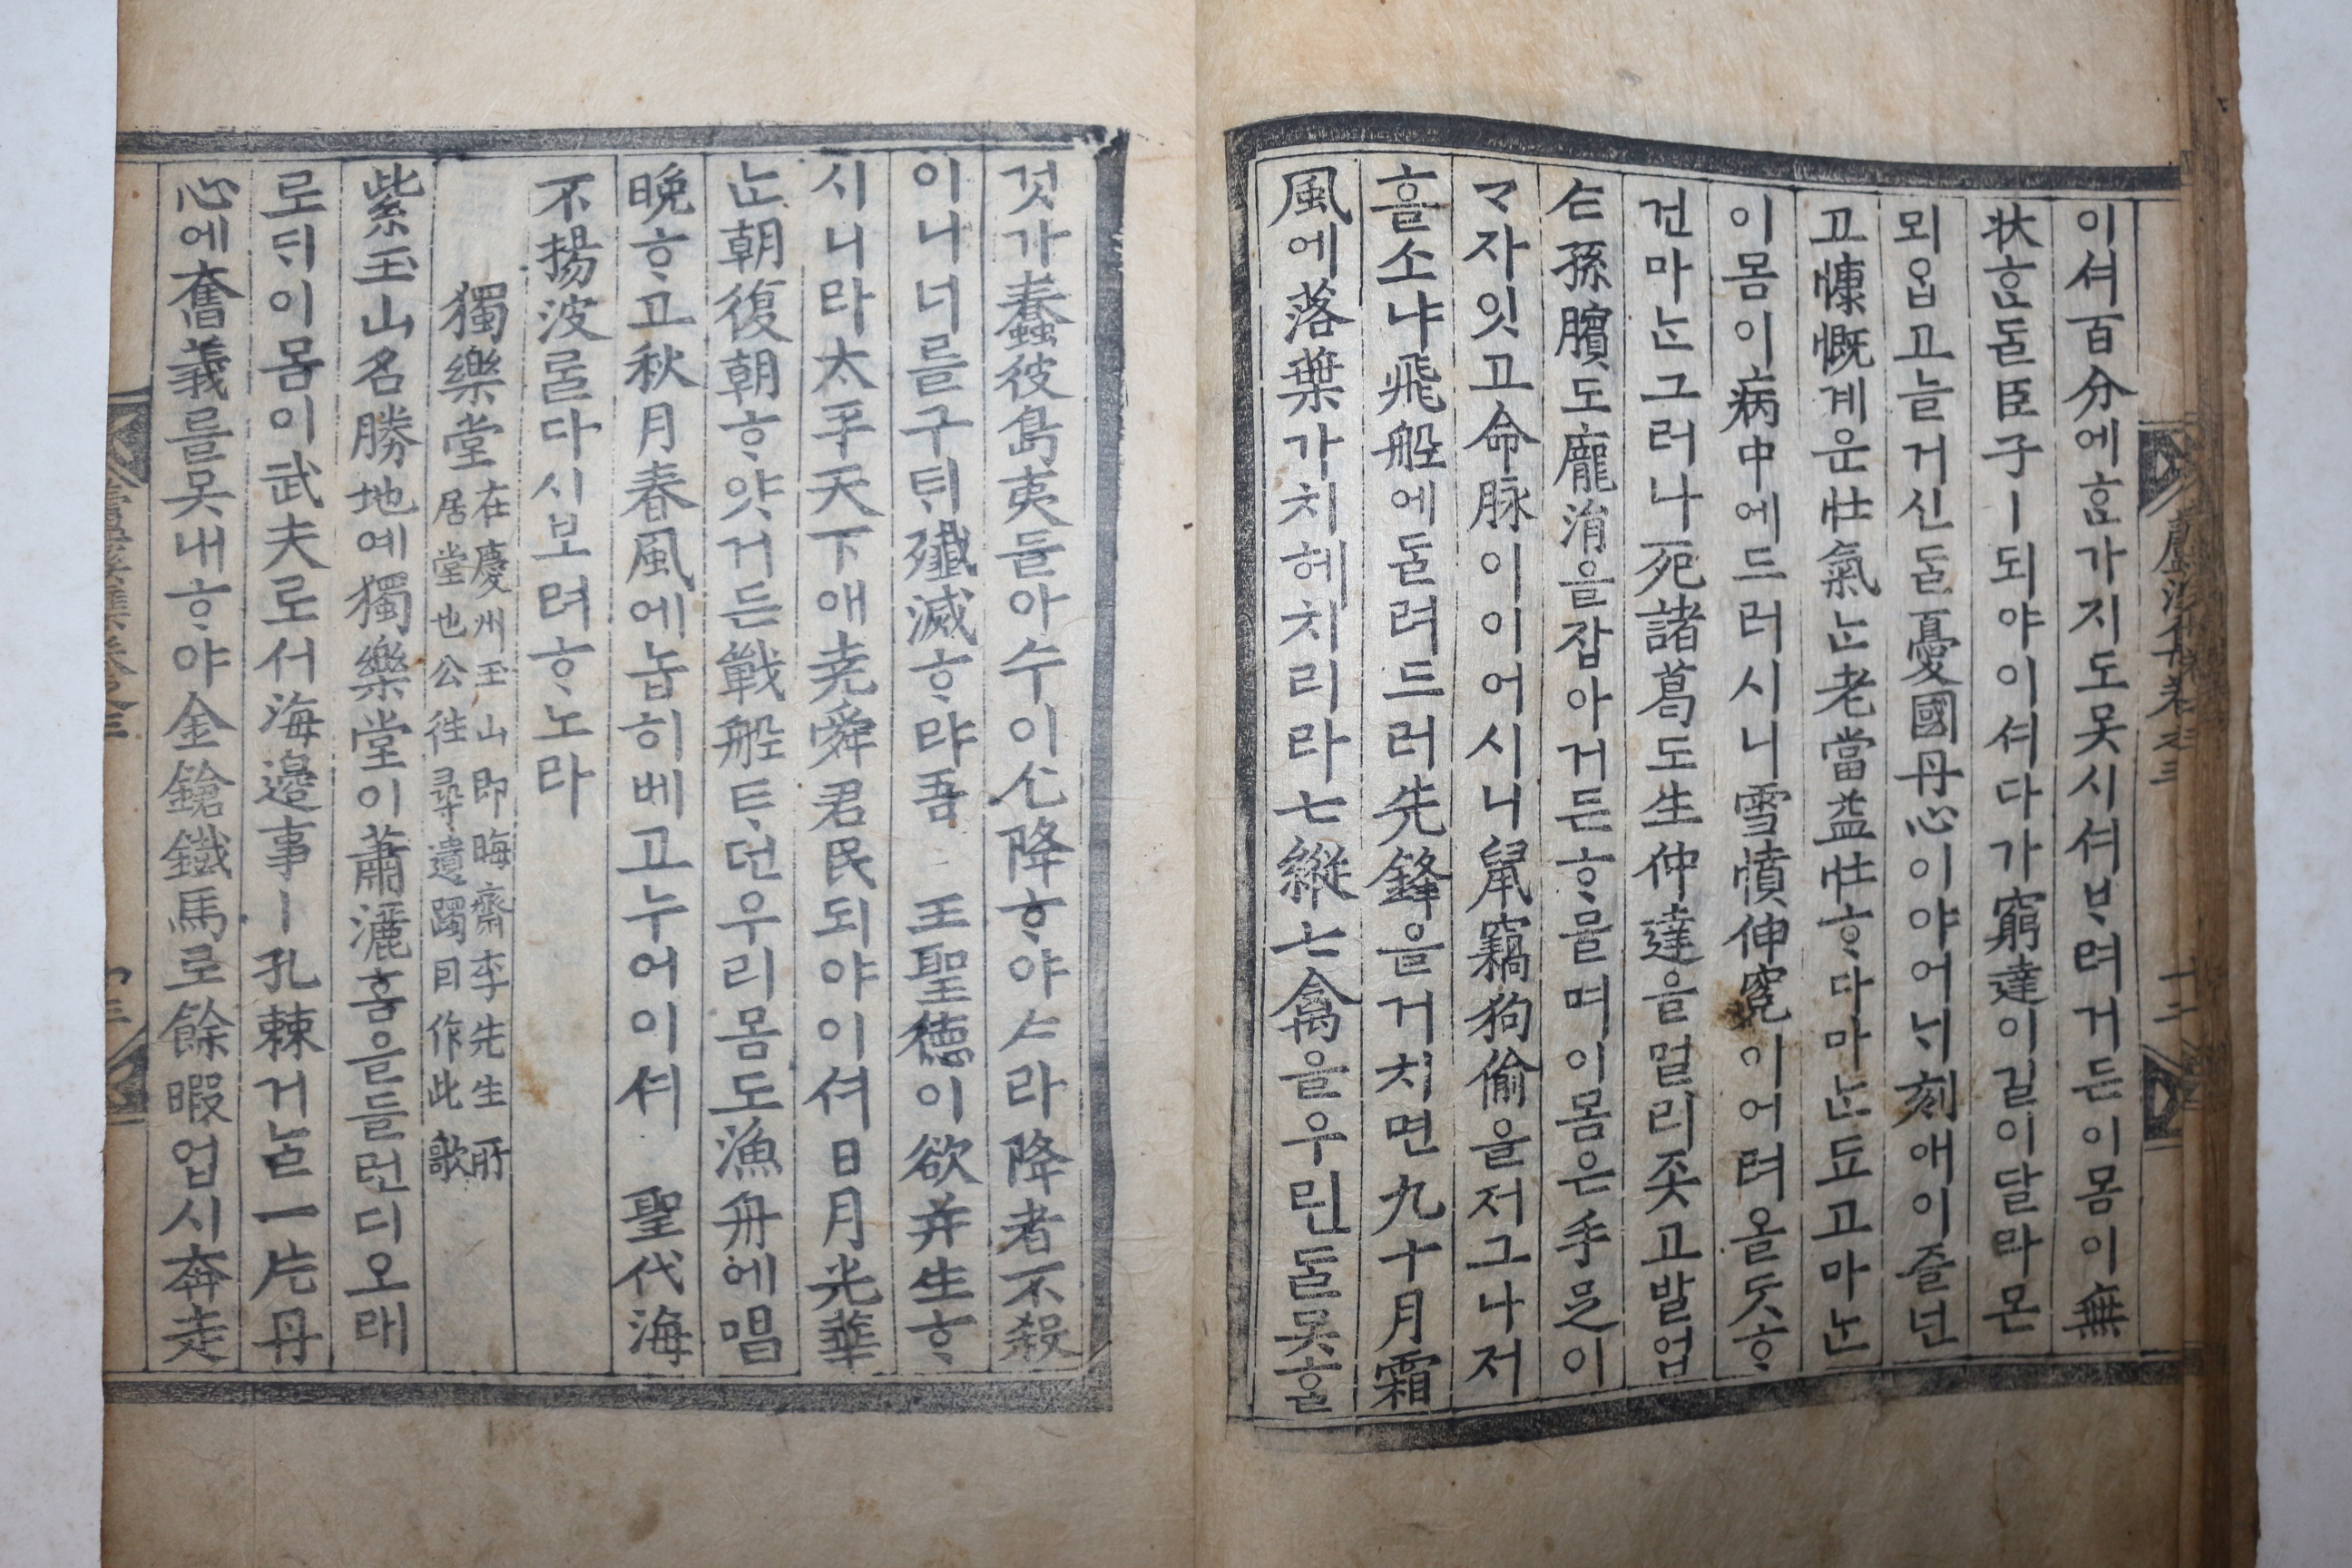 이셔百分에ᄒᆞᆫ가지도못시셔ᄇᆞ려거든이몸이無
狀ᄒᆞᆫᄃᆞᆯ臣子ㅣ되야이셔다가窮達이길이달라몬
뫼ᄋᆞᆸ고늘거신ᄃᆞᆯ憂國丹心이야어ᄂᆡ刻애이즐넌
고慷慨계운壯氣ᄂᆞᆫ老當益壯ᄒᆞ다마ᄂᆞᆫ됴고마ᄂᆞᆫ
이몸이病中에드러시니雪憤伸寃이어려올ᄃᆞᆺᄒᆞ
건마ᄂᆞᆫ그러나死諸葛도生仲達을멀리좃고발업
ᄉᆞᆫ孫臏도龐涓을잡아거든ᄒᆞ믈며이몸은手足이
ᄀᆞ자잇고命脉이이어시니鼠竊狗偷을저그나저
흘소냐飛船에ᄃᆞᆯ려드러先鋒을거치면九十月霜
風에落葉가치헤치리라七縱七禽을우린ᄃᆞᆯ못ᄒᆞᆯ
것가蠢彼島夷들아수이乞降ᄒᆞ야ᄉᆞ라降者不殺
이니너를구ᄐᆡ殲滅ᄒᆞ랴吾 王聖德이欲并生ᄒᆞ
시니라太平天下애堯舜君民되야이셔日月光華
ᄂᆞᆫ朝復朝ᄒᆞ얏거든戰船ᄐᆞ던우리몸도漁舟에唱
晚ᄒᆞ고秋月春風에놉히베고누어이셔 聖代海
不揚波ᄅᆞᆯ다시보려ᄒᆞ노라
獨樂堂 在慶州玉山即晦齋李先生所
居堂也公往尋遺躅因作此歌
紫玉山名勝地예獨樂堂이蕭灑홈을들런디오래
로ᄃᆡ이몸이武夫로서海邊事ㅣ孔棘거ᄂᆞᆯ一片丹
心에奮義를못내ᄒᆞ야金鎗鐵馬로餘暇업시奔走